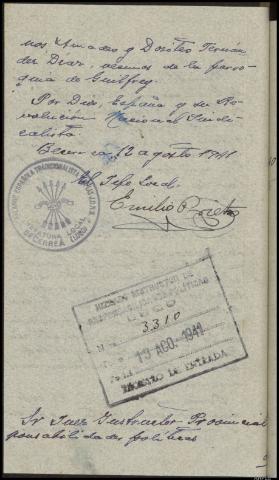 nos Amadeo y Dositeo Fernan
dez Diaz, vecinos de la parro-
quia de Guilfrey.
Por Dios, España y su Re-
volución Nacional Sindi-
calista.
Becerrea 12 agosto 1941
El Jefe Local.
Emilio
FALANGE ESPAÑOLA TRADICIONALISTA Y DE LAS J.O.N.S.
JEFATURA LOCAL
BECERREÁ
(LUGO)
JUZGADO INSTRUCTOR DE
RESPONSABILIDADES POLITICAS
LUGO
N.º 3310
19 AGO. 1941
REGISTRO DE ENTRADA
Sr Juez Instructor Provincial
ponsabilidades políticas